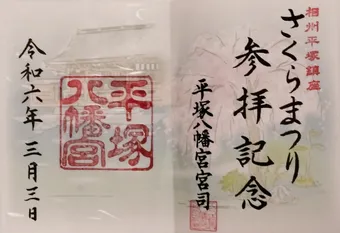 相州平塚鎮座
さくらまつり
参拝記念
平塚八幡宮宮司
平塚
八幡宮
令和六年三月三日